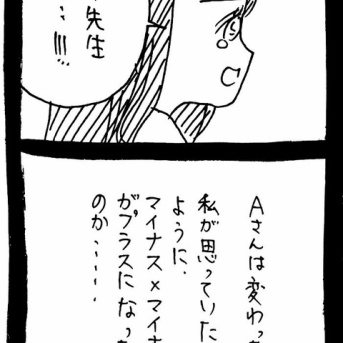 先生
・・!!!
Aさんは変わっ
私が思っていた
ように、
マイナス×マイナ
がプラスになっ
のか・・・・・